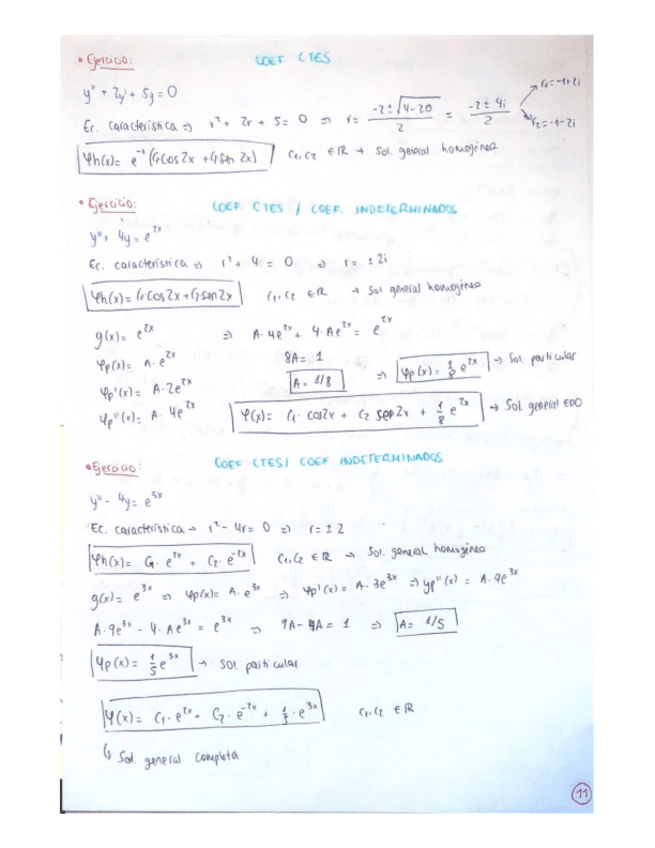 • Ejercicio: COEF CTES
y'' + 2y' + 5y = 0
Ec. característica ⇒ r² + 2r + 5 = 0 ⇒ r = (-2 ± √(4-20))/2 = (-2 ± 4i)/2 → r₁ = -1+2i
r₂ = -1-2i
φh(x) = e^-x (C₁ cos 2x + C₂ sen 2x) C₁, C₂ ∈ ℝ → Sol. general homogénea
• Ejercicio: COEF. CTES / COEF. INDETERMINADOS
y'' + 4y = e^2x
Ec. característica ⇒ r² + 4 = 0 ⇒ r = ± 2i
φh(x) = C₁ cos 2x + C₂ sen 2x C₁, C₂ ∈ ℝ → Sol general homogénea
g(x) = e^2x ⇒ A·4e^2x + 4·Ae^2x = e^2x
φp(x) = A·e^2x 8A = 1 ⇒ φp(x) = 1/8 e^2x → Sol. particular
φp'(x) = A·2e^2x A = 1/8
φp''(x) = A·4e^2x φ(x) = C₁·cos2x + C₂ sen 2x + 1/8 e^2x → Sol. general EDO
• Ejercicio: COEF CTES / COEF INDETERMINADOS
y'' - 4y = e^3x
Ec. característica → r² - 4r = 0 ⇒ r = ± 2
φh(x) = C₁·e^2x + C₂·e^-2x C₁, C₂ ∈ ℝ → Sol. general homogénea
g(x) = e^3x ⇒ φp(x) = A·e^3x ⇒ φp'(x) = A·3e^3x ⇒ yp''(x) = A·9e^3x
A·9e^3x - 4·Ae^3x = e^3x ⇒ 9A - 4A = 1 ⇒ A = 1/5
φp(x) = 1/5 e^3x → Sol particular
φ(x) = C₁·e^2x + C₂·e^-2x + 1/5·e^3x C₁, C₂ ∈ ℝ
↳ Sol. general completa
11